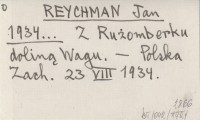 REYCHMAN Jan
1934... Z Rużomberku
doliną Wagu. — Polska
Zach. 23 VIII 1934.